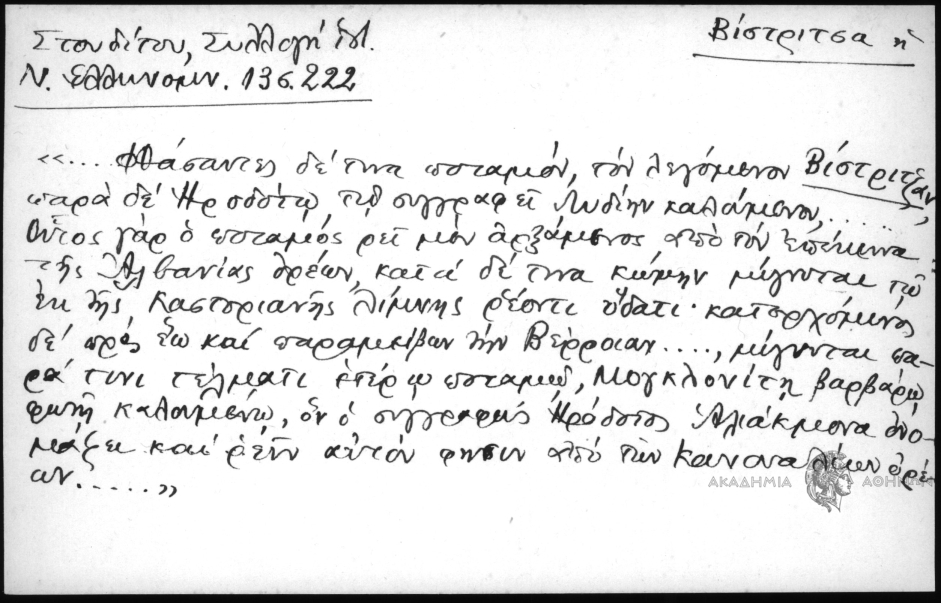 Στουδίτου, Συλλογή
Ν. Ἑλληνομν. 13 σ. 222
Βίστριτσα ἡ
«.... Φθάσαντες δέ τινα ποταμόν, τόν λεγόμενον Βίστριτζαν,
παρά δέ Ἡροδότῳ τῷ συγγραφεῖ Λυδίην καλούμενον,....
Οὗτος γάρ ὁ ποταμός ρεῖ μέν ἀρξάμενος ἀπό τῶν ἐπέκεινα
τῆς Ἀλβανίας ὀρέων, κατά δέ τινα κώμην μίγνυται τῷ
ἐκ τῆς Καστοριανῆς λίμνης ρέοντι ὕδατι· κατερχόμενος
δέ πρός ἕω καί παραμείβων τήν Βέρροιαν...., μίγνυται πα-
ρά τινι τέλματι ἑτέρῳ ποταμῷ, Μογκλονίτῃ βαρβάρῳ
φωνῇ καλουμένῳ, ὅν ὁ συγγραφεύς Ἡρόδοτος Ἁλιάκμονα ὀνο-
μάζει καί ρεῖν αὐτόν φησιν ἀπό τῶν Καναναλίων ὀρέ-
ων.....»
ΑΚΑΔΗΜΙΑ ΑΘΗΝΩΝ